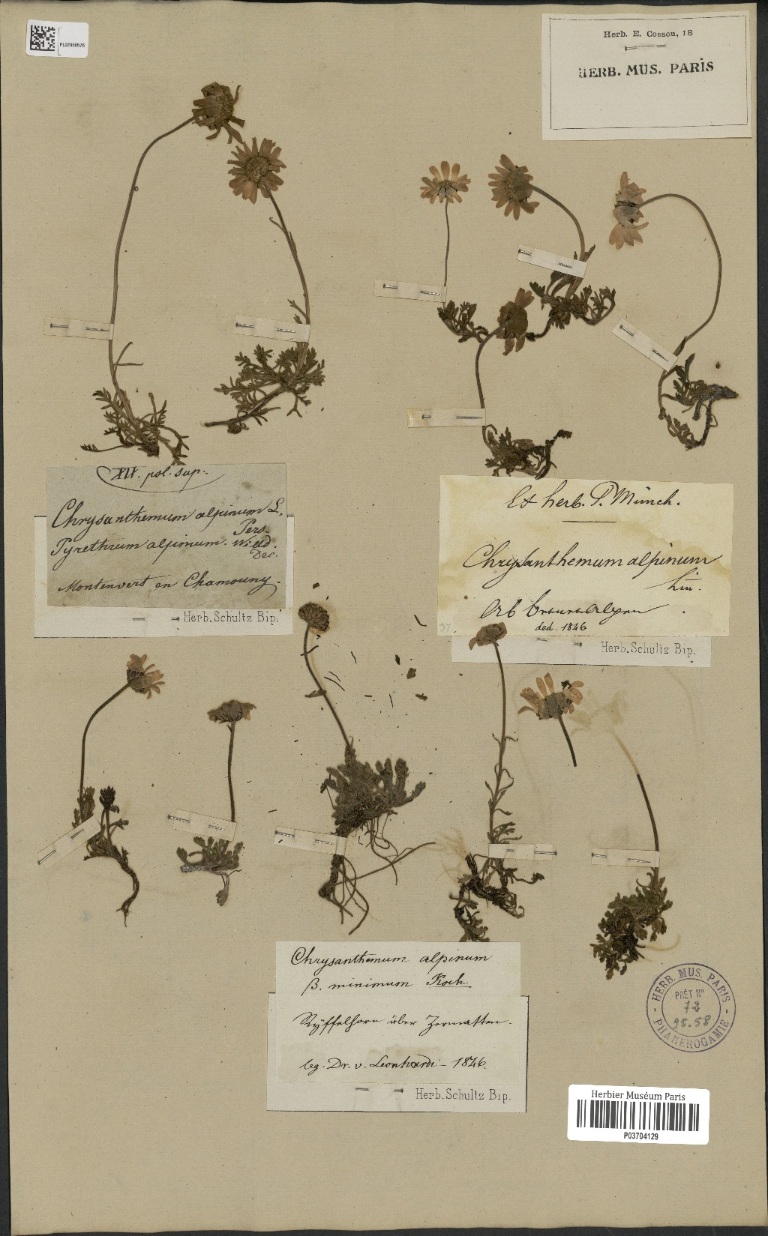 Herb. E. Cosson, 18
HERB. MUS. PARIS
XIX. pol. sup.
Chrysanthemum alpinum L.
Pers.
Pyrethrum alpinum. Willd.
Dec.
Montanvert en Chamouny.
Herb. Schultz Bip.
Ex herb. P. Münch.
Chrysanthemum alpinum
Lin.
ded. 1846
37.
Herb. Schultz Bip.
Chrysanthemum alpinum
β. minimum Koch.
Ryffelhorn über Zermatten.
leg. Dr. v. Leonhardi - 1846.
Herb. Schultz Bip.
HERB. MUS. PARIS
PRÊT No
72
95.58
PHANEROGAMIE
Herbier Muséum Paris
P03704129